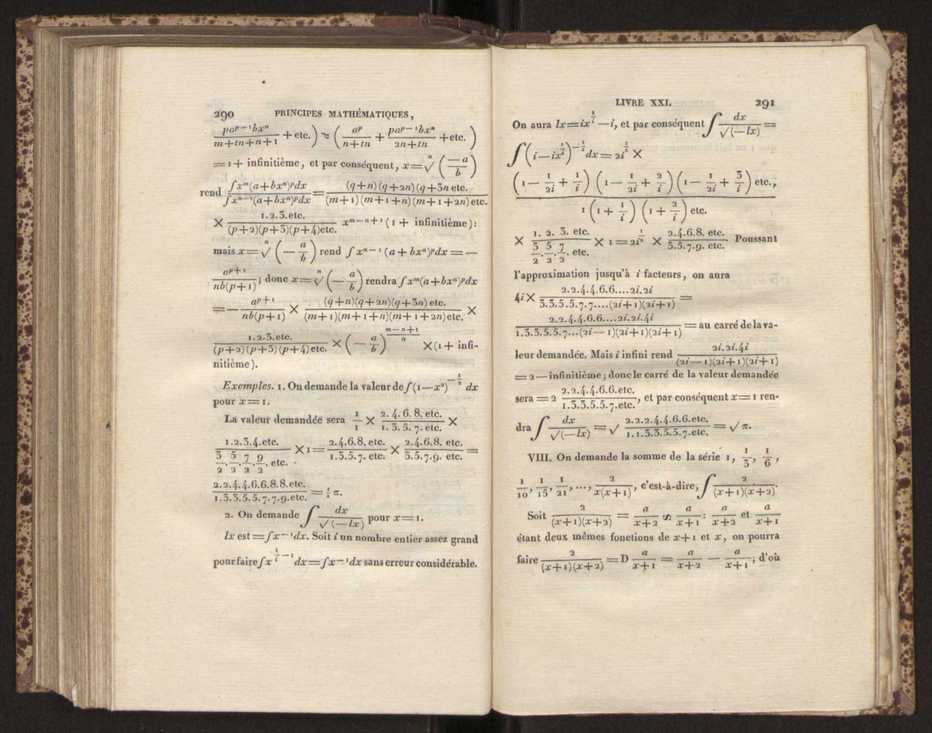 290 PRINCIPES MATHÉMATIQUES,
pa^{p-1}bx^n / (m+tn+n+1) + etc.) ∾ (a^p / (n+tn) + pa^{p-1}bx^n / (2n+tn) + etc.)
= 1 + infinitième, et par conséquent, x = ⁿ√(−a/b)
rend ∫x^m(a+bx^n)^p dx / ∫x^{n-1}(a+bx^n)^p dx = (q+n)(q+2n)(q+3n etc. / (m+1)(m+1+n)(m+1+2n)etc.
× 1.2.3.etc. / (p+2)(p+3)(p+4)etc. x^{m-n+1} (1 + infinitième):
mais x = ⁿ√(−a/b) rend ∫x^{n-1}(a+bx^n)^p dx = —
a^{p+1} / nb(p+1); donc x = ⁿ√(−a/b) rendra ∫x^m(a+bx^n)^p dx
= − a^{p+1} / nb(p+1) × (q+n)(q+2n)(q+3n) etc. / (m+1)(m+1+n)(m+1+2n)etc. ×
1.2.3.etc. / (p+2)(p+3)(p+4)etc. × (−a/b)^{(m-n+1)/n} × (1 + infi-
nitième).
Exemples. 1. On demande la valeur de ∫(1—x²)^{-1/2} dx
pour x = 1.
La valeur demandée sera 1/1 × 2.4.6.8. etc. / 1.3.5.7. etc. ×
1.2.3.4.etc. / 3/2.5/2.7/2.9/2. etc. × 1 = 2.4.6.8. etc. / 1.3.5.7. etc. × 2.4.6.8. etc. / 3.5.7.9. etc. =
2.2.4.4.6.6.8.8.etc. / 1.3.3.5.5.7.7.9.etc. = 1/2 π.
2. On demande ∫ dx / √(—lx) pour x = 1.
lx est = ∫x^{-1}dx. Soit i un nombre entier assez grand
pour faire ∫x^{1/i -1} dx = ∫x^{-1}dx sans erreur considérable.
LIVRE XXI. 291
On aura lx = ix^{1/i} — i, et par conséquent ∫ dx / √(—lx) =
∫(i—ix^{1/i})^{-1/2} dx = 2i^{1/2} ×
(1 — 1/2i + 1/i) (1 — 1/2i + 2/i)(1 — 1/2i + 3/i) etc., / 1(1 + 1/i)(1 + 2/i) etc.
× 1. 2. 3. etc. / 3/2.5/2.7/2. etc. × 1 = 2i^{1/2} × 2.4.6.8. etc. / 3.5.7.9. etc. Poussant
l'approximation jusqu'à i facteurs, on aura
4i × 2.2.4.4.6.6....2i.2i / 3.3.5.5.7.7....(2i+1)(2i+1) =
2.2.4.4.6.6....2i.2i.4i / 1.3.3.5.5.7...(2i—1)(2i+1)(2i+1) = au carré de la va-
leur demandée. Mais i infini rend 2i.2i.4i / (2i—1)(2i+1)(2i+1)
= 2 — infinitième; donc le carré de la valeur demandée
sera = 2 2.2.4.4.6.6.etc. / 1.3.3.5.5.7.etc., et par conséquent x = 1 ren-
dra ∫ dx / √(—lx) = √ 2.2.2.4.4.6.6.etc. / 1.1.3.3.5.5.7.etc. = √π.
VIII. On demande la somme de la série 1, 1/3, 1/6,
1/10, 1/15, 1/21, ..., 2 / x(x+1), c'est-à-dire, ∫ 2 / (x+1)(x+2).
Soit 2 / (x+1)(x+2) = a / x+2 ∾ a / x+1: a / x+2 et a / x+1
étant deux mêmes fonctions de x+1 et x, on pourra
faire 2 / (x+1)(x+2) = D a / x+1 = a / x+2 — a / x+1; d'où